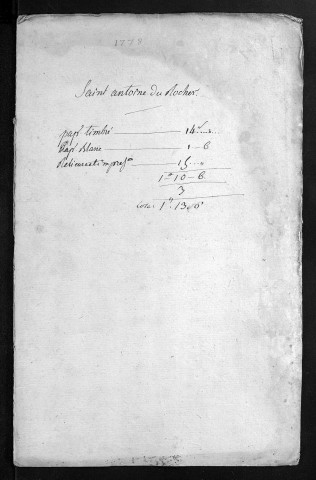 1778
Saint antoine du Rocher.
pap.r timbré 14 s
pap.r Blanc 1 - 6
Relieure et impres.on 15 "
1 tt 10 - 6
3
1 tt 13 s 6 d